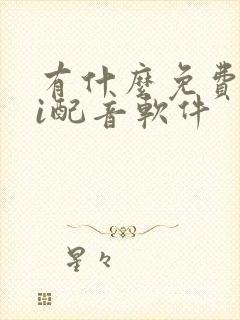 有什麼免費
i配音軟件
星々